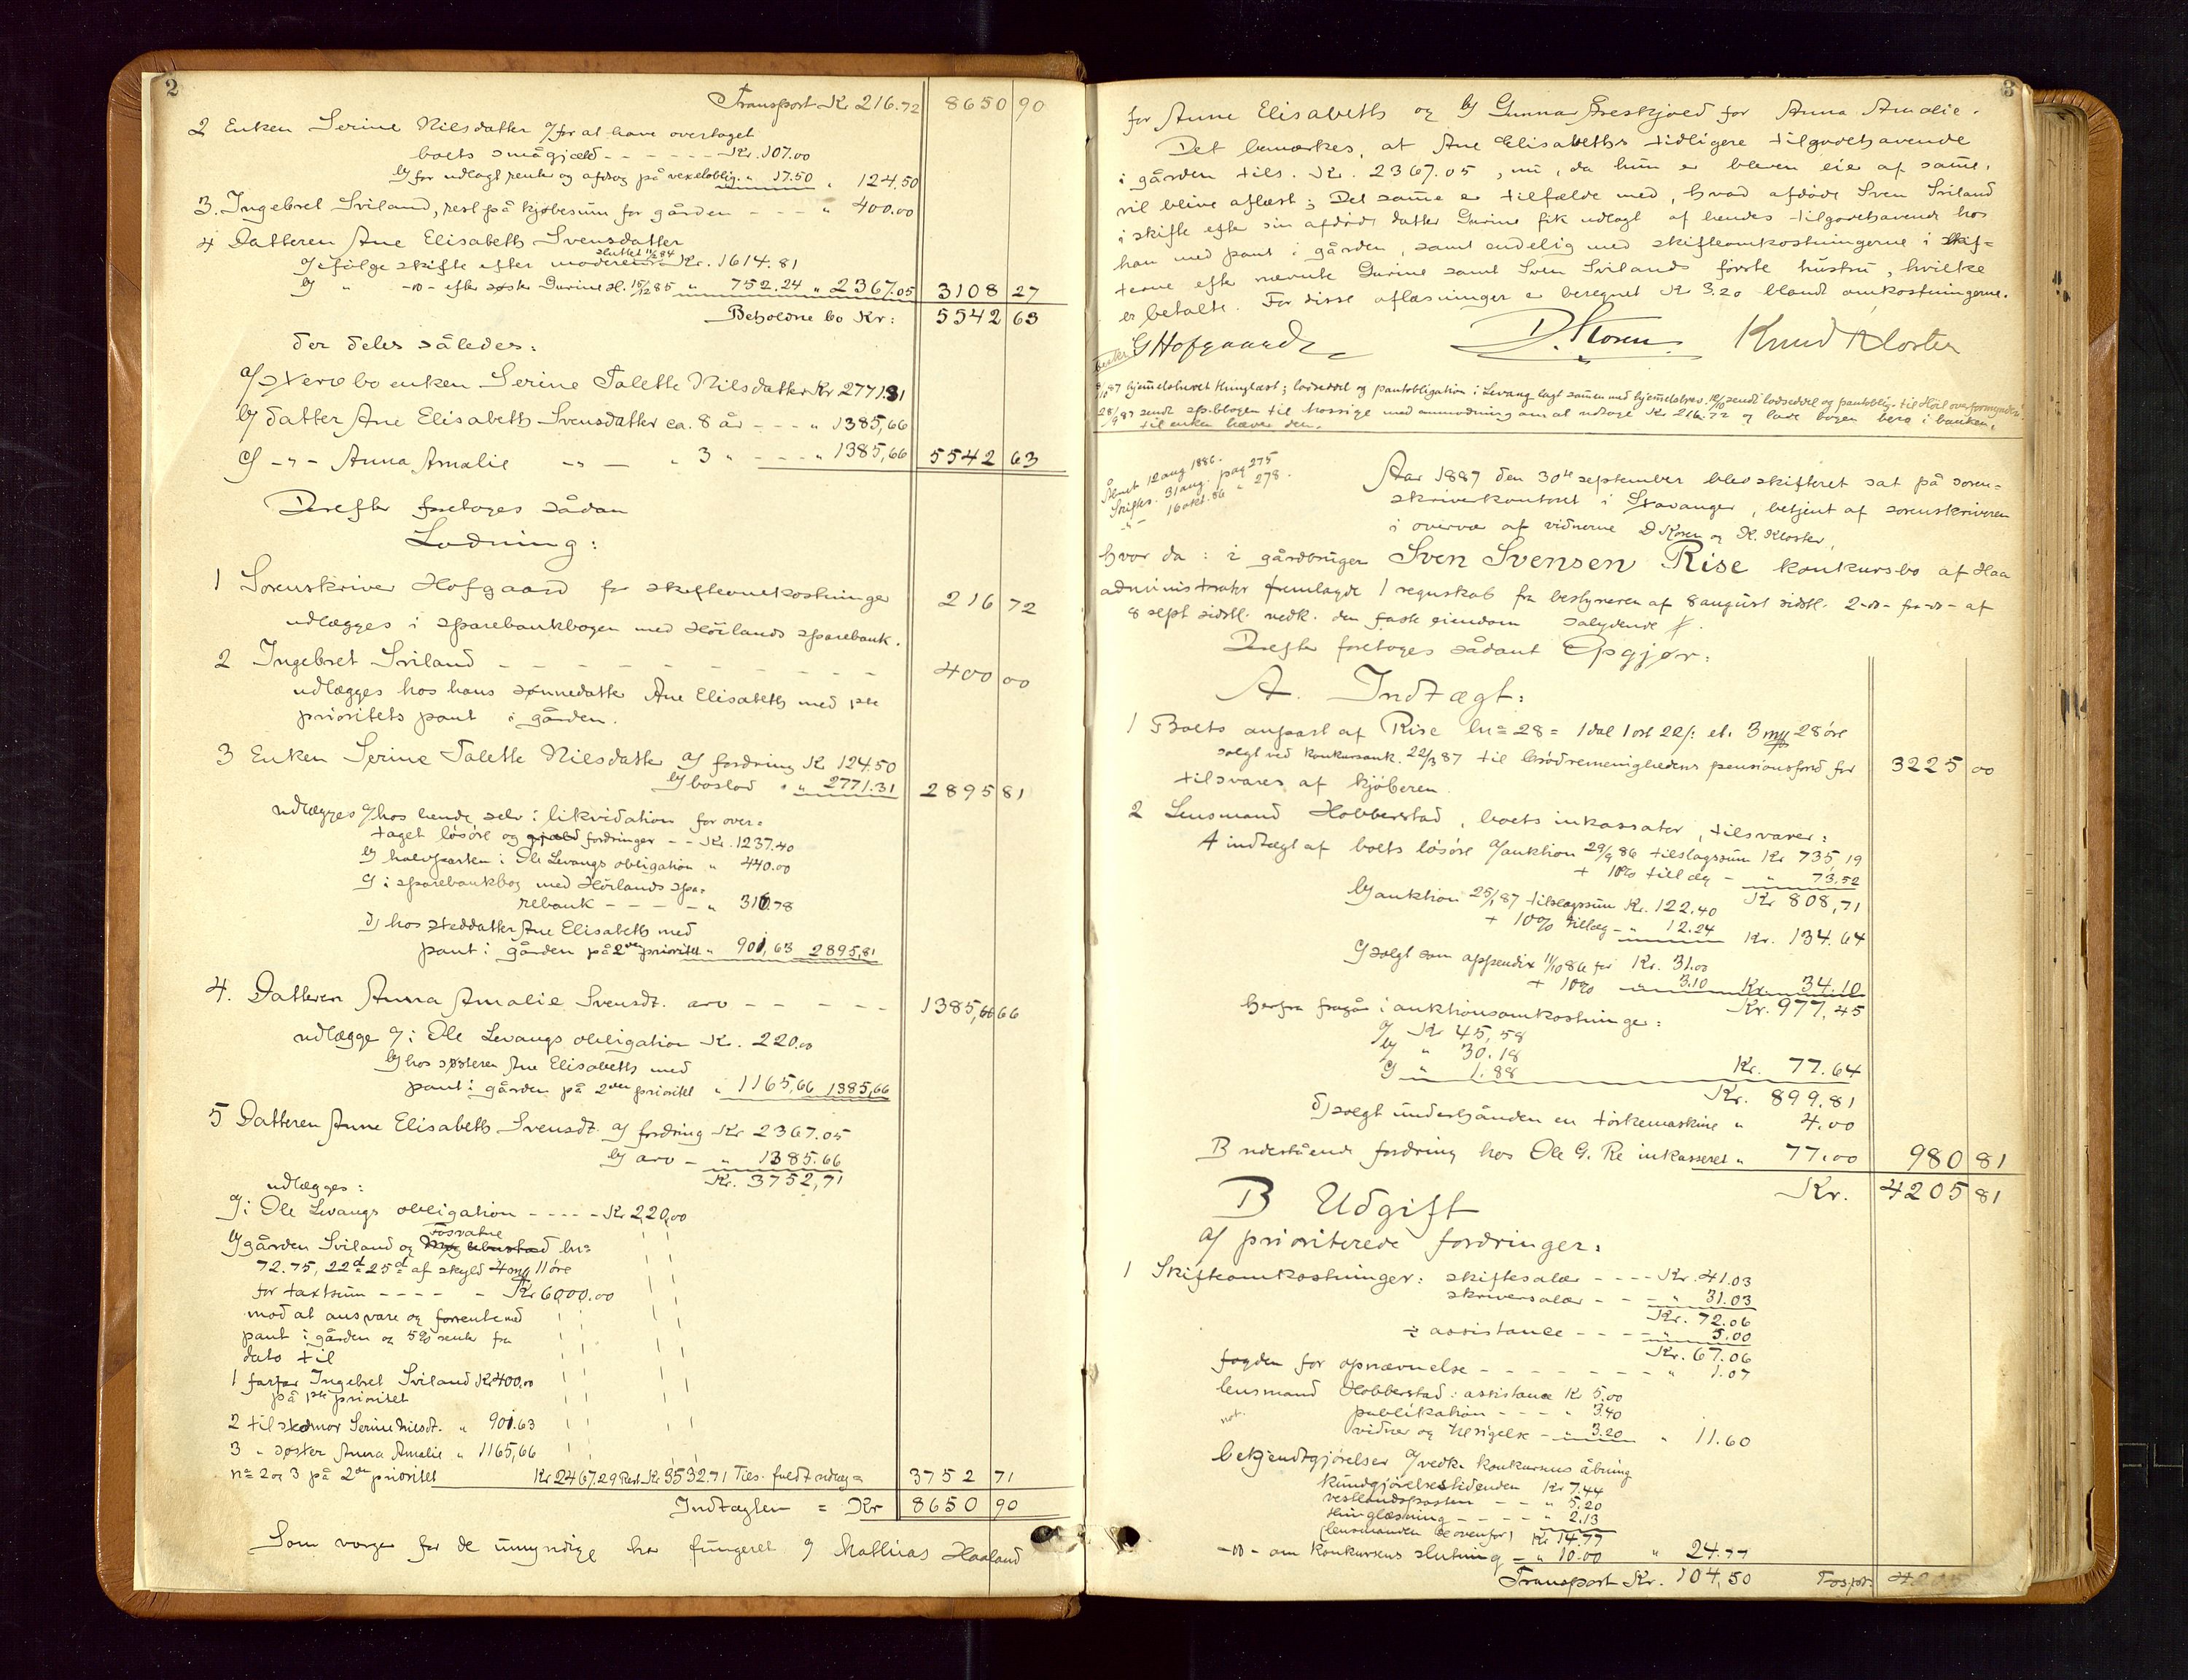 2
Transport Kr 216.72 8650 90
2 Enken Serine Nilsdatter a/ for at have overtaget
boets smågjæld - - - - - - Kr. 107.00
b/ for udlagt rente og afdrag på vexeloblig. " 17.50 " 124.50
3. Ingebret Sviland, rest på kjøbesum for gården - - - " 400.00
4 Datteren Ane Elisabeth Svensdatter
sluttet 11/2 84
a/ ifølge skifte efter moderen Kr. 1614.81
b/ " -"- efter søster Gurine sl. 15/12 85 " 752.24 " 2367.05 3108 27
Beholdne bo Kr: 5542 63
der deles således:
a/ Sterbo enken Serine Talette Nilsdatter Kr 2771.31
b/ datter Ane Elisabeth Svensdatter ca. 8 år - - - " 1385,66
c/ -"- Anna Amalie -"- - " 3 " - - - " 1385,66 5542 63
Derefter foretoges sådan
Lodning:
1 Sorenskriver Hofgaard for skifteomkostninger 216 72
udlægges i sparebankbogen med Höilands sparebank.
2 Ingebret Sviland - - - - - - - - 400 00
udlægges hos hans sønnedatter Ane Elisabeth med 1ste
prioritets pant i gården.
3 Enken Serine Talette Nilsdatter a/ fordring Kr 124.50
b/ boslod " " 2771.31 2895 81
udlægges a/ hos hende selv i likvidation for over=
taget løsøre og gjæld fordringer - - Kr. 1237.40
b/ halvparten i Ole Levangs obligation " 440.00
c/ i sparebankbog med Höilands spa=
rebank - - - - " 316.78
d/ hos steddatter Ane Elisabeth med
pant i gården på 2den prioritet " 901,63 2895,81
4. Datteren Anna Amalie Svensdt. arv - - - - - 1385,66 66
udlægge a/ i Ole Levangs obligation Kr. 220.00
b/ hos søsteren Ane Elisabeth med
pant i gården på 2den prioritet " 1165,66 1385,66
5 Datteren Anne Elisabeth Svensdt. a/ fordring Kr 2367.05
b/ arv - " 1385.66
Kr. 3752,71
udlægges:
a/ i Ole Levangs obligation - - - - Kr 220,00
Fosvatne
b/ gården Sviland og lnr
72.75, 22d 25d af skyld 4 my 11 øre
for taxtsum - - - - - Kr 6000.00
mod at ansvare og forrente med
pant i gården og 5% rente fra
dato til
1 farfar Ingebret Sviland Kr 400,00
på 1ste prioritet
2 til stedmor Serine Nilsdt. " 901.63
3 " søster Anna Amalie " 1165,66
no 2 og 3 på 2den prioritet Kr 2467.29 Rest Kr 3532.71 Tils. fuldt udlæg = 3752 71
Indtægten = Kr 8650 90
Som værger for de umyndige har fungeret a/ Mathias Haaland
3
for Anne Elisabeth og b/ Gunnar Freskjoed for Anna Amalie.
Det bemærkes, at Ane Elisabeths tidligere tilgodehavende
i gården tils. Kr. 2367.05, nu, da hun er bleven eier af samme,
vil blive aflæst; Det samme er tilfælde med, hvad afdøde Sven Sviland
i skifte efter sin afdøde datter Gurine fik udlagt af hendes tilgodehavende hos
han med pant i gården, samt endelig med skifteomkostningerne i skif=
terne efter nævnte Gurine samt Sven Svilands første hustru, hvilke
er betalte. For disse aflæsninger er beregnet Kr 3.20 blandt omkostningerne.
G Hofgaard D. Koren. Knud Kloster
hjemmelsbrevet thinglæst; lodseddel og pantobligation i Levang lagt sammen med hjemmelsbrev. sendt lodseddel og pantoblig. til Höil overformynderi
28/9 87 sendt sp.bbogen til Mossige med anmodning om at udtage Kr 216.72 og lade bogen bero i banken,
til enken hæver den.
Åbnet 12 aug 1886.
Skiftes. 31 aug. pag 275
-"- 16 okt. 86 " 278.
Aar 1887 den 30te september blev skifteret sat på soren=
skriverkontoret i Stavanger, betjent af sorenskriveren
i overvær af vidnerne D Koren og K. Kloster,
hvor da: i gårdbruger Sven Svensen Rise konkursbo af Haa
administrator fremlagde 1 regnskab fra bestyreren af 8 august sidstl. 2 -"- fra -"- af
8 sept sidstl. vedk. den faste eiendom salydende #.
Derefter foretoges sådant Opgjør:
A. Indtægt:
1 Boets anpart af Rise lnr 28 = 1 dal 1 ort 22 s: el. 3 my 28 øre
solgt ved konkursauk. 22/3 87 til brødremenighedens pensionsfond for 3225 00
tilsvares af kjøberen
2 Lensmand Hobberstad, boets inkassator, tilsvarer:
A indtægt af boets løsøre a/ auktion 29/9 86 tilslagssum Kr 735,19
+ 10% tillæg - " 73,52
Kr 808,71
b/ auktion 25/1 87 tilslagssum Kr. 122.40
+ 10% tillæg - " 12.24 Kr. 134.64
c/ solgt som appendix 11/10 86 for Kr. 31.00
+ 10% " 3.10 Kr. 34.10
Kr. 977,45
herfra fragår i auktionsomkostninger:
a/ Kr 45,58
b/ " 30.18
c/ " 1.88 Kr. 77.64
Kr. 899.81
d) solgt underhånden en tørkemaskine " 4.00
B udestående fordring hos Ole G. Re inkasseret " 77.00 980 81
Kr. 4205 81
B Udgift
a/ prioriterede fordringer:
1 Skifteomkostninger: skiftesalær - - - - Kr. 41.03
skriversalær - - - " 31.03
Kr. 72.06
÷ assistance - - - - " 5.00
Kr. 67.06
fogden for opnævnelse - - - - - - - " 1.07
lensmand Hobberstad: assistance Kr 5.00
publikation - - - - " 3.40
not. vidner og tilsigelse - " 3.20 " 11.60
bekjendtgjørelser a/ vedk. konkursens åbning
kundgjørelsestidenden Kr 7.44
vestlandsposten - - " 5.20
thinglæsning - - - - " 2.13
(lensmanden se ovenfor) Kr 14.77
-"- om konkursens slutning - " 10.00 " 24.77
Transport Kr. 104,50 Tospt. 4205